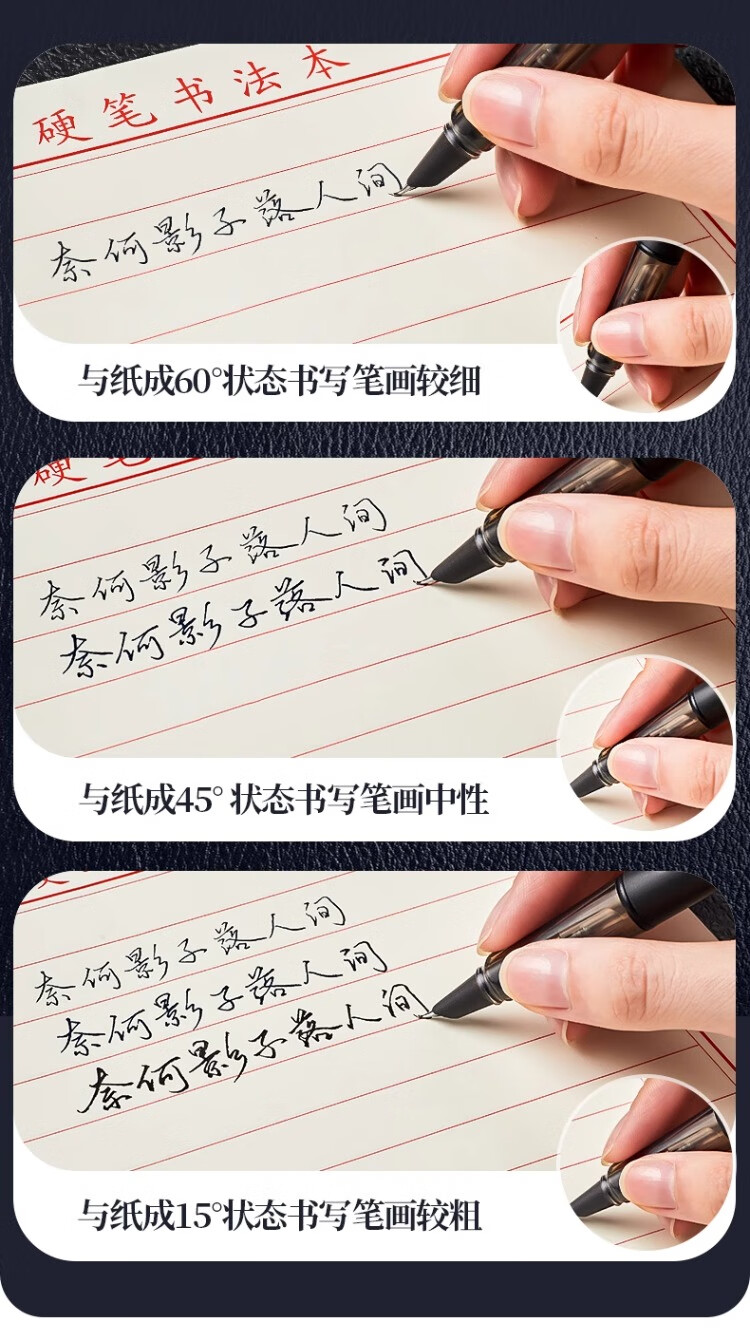 硬笔书法本
奈何影子落人间
与纸成60°状态书写笔画较细
硬笔
奈何影子落人间
奈何影子落人间
与纸成45°状态书写笔画中性
奈何影子落人间
奈何影子落人间
奈何影子落人间
与纸成15°状态书写笔画较粗